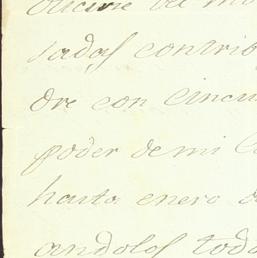 sadas contrib
dre con cincu
poder de mi C
hasta enero d
andolos todo